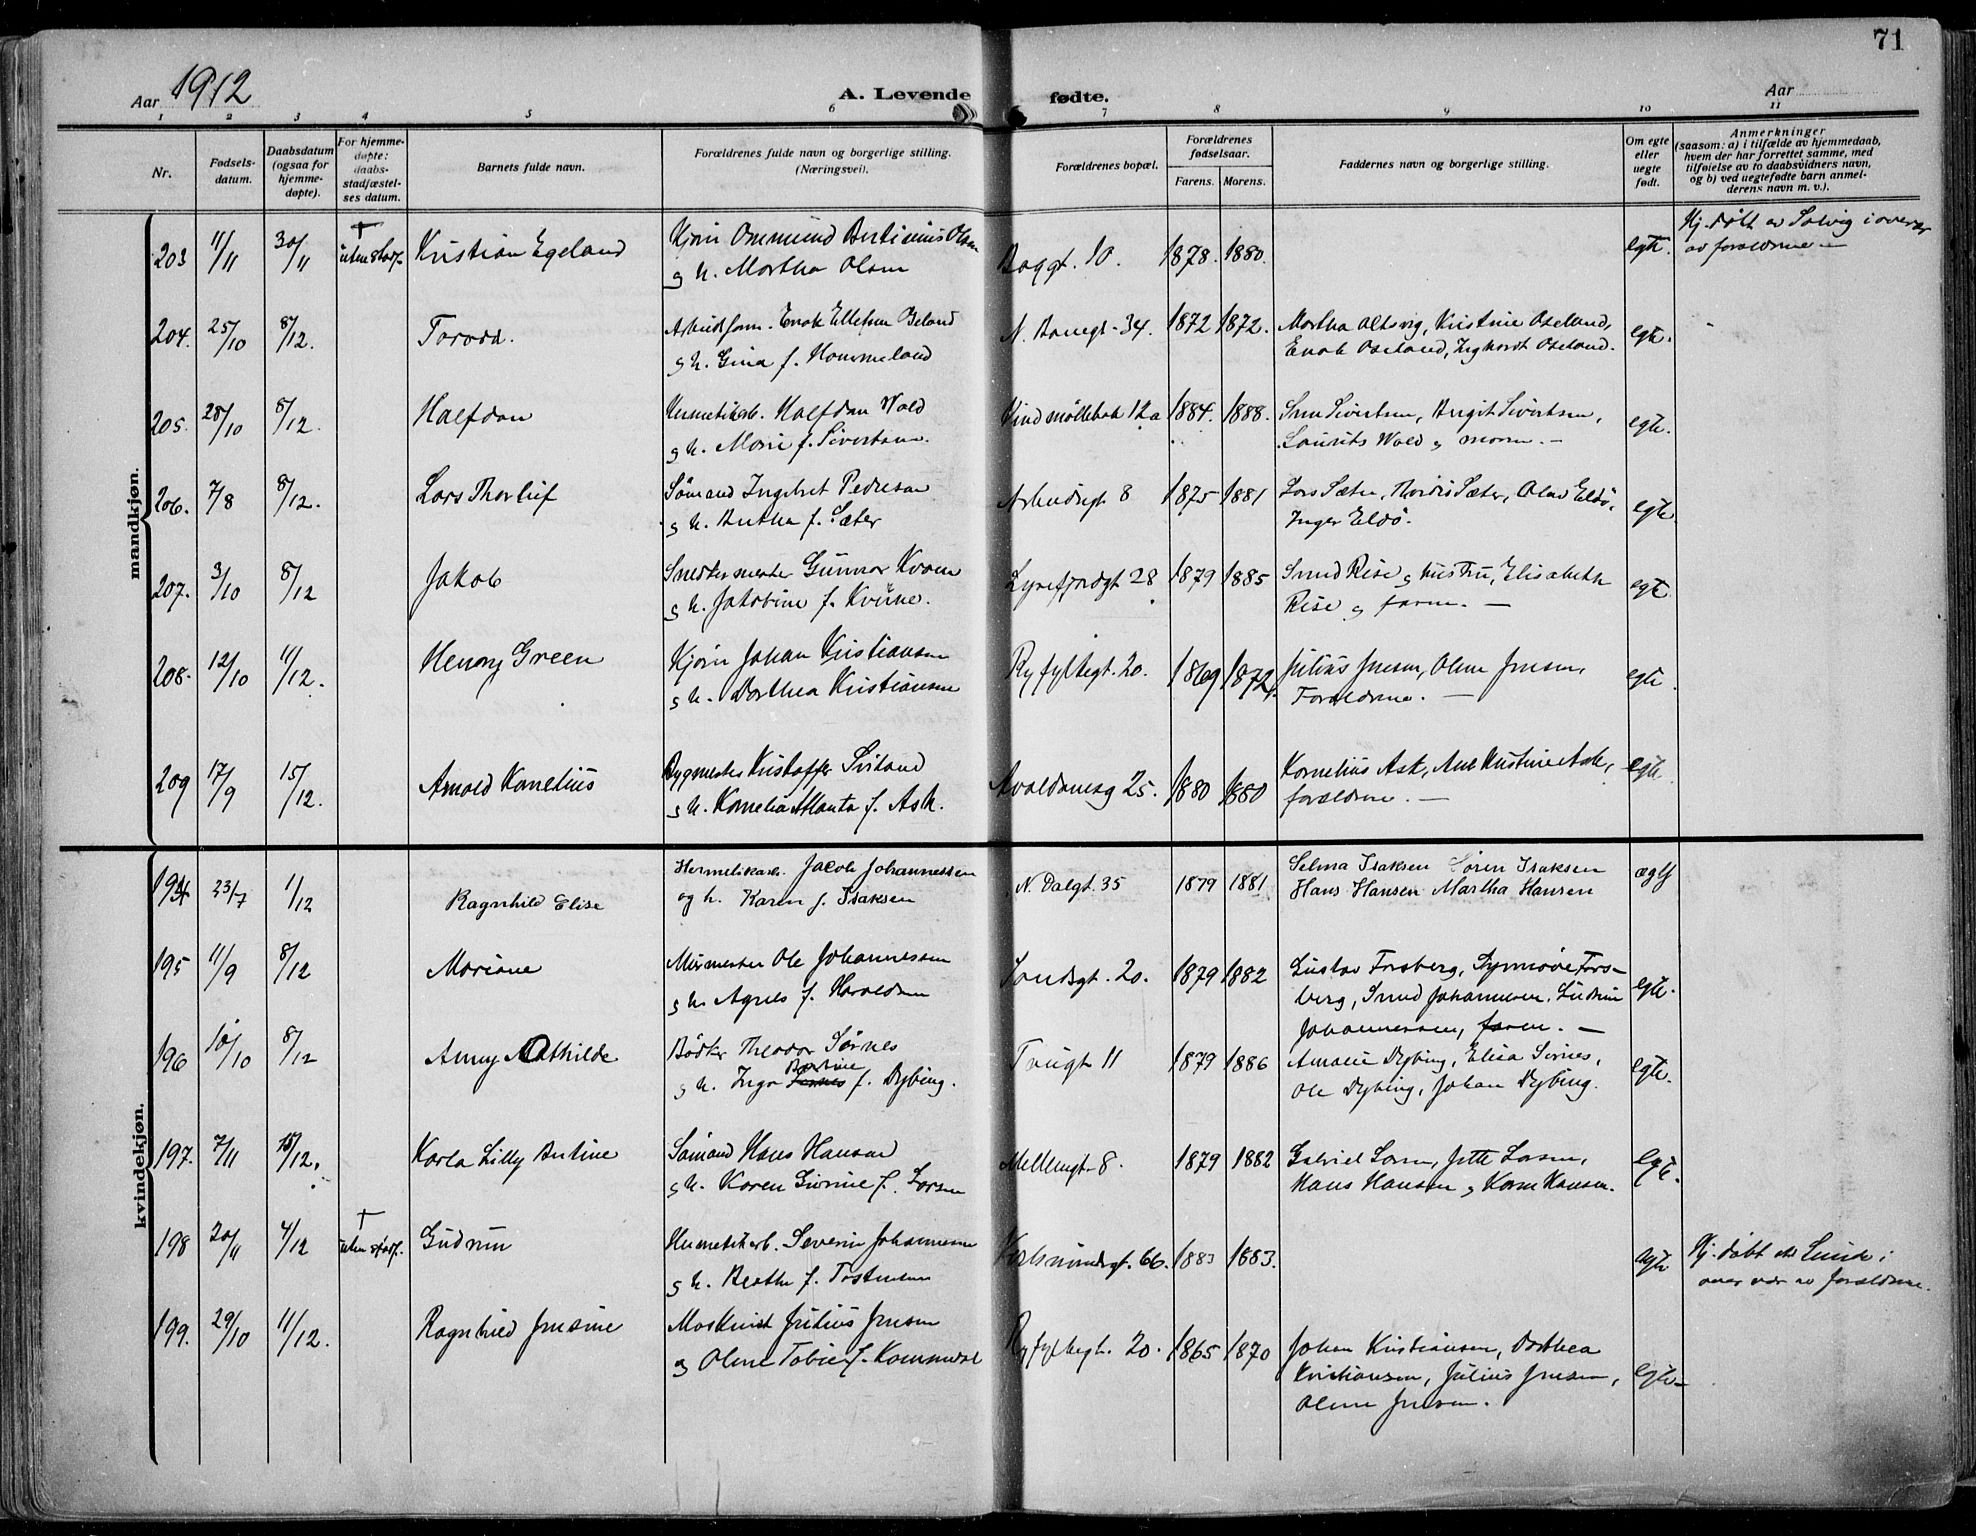 71
Aar 1912
A. Levende fødte.
Aar
1 2 3 4 5 6 7 8 9 10 11
Nr.
Fødsels-
datum.
Daabsdatum
(ogsaa for
hjemme-
døpte).
For hjemme-
døpte:
daabs-
stadfæstel-
ses datum.
Barnets fulde navn.
Forældrenes fulde navn og borgerlige stilling.
(Næringsvei).
Forældrenes bopæl.
Forældrenes
fødselsaar.
Farens. Morens.
Faddernes navn og borgerlige stilling.
Om egte
eller
uegte
født.
Anmerkninger
(saasom: a) i tilfælde av hjemmedaab,
hvem der har forrettet samme, med
tilføielse av to daabsvidners navn,
og b) ved uegtefødte barn anmel-
derens navn m. v.).
mandkjøn.
203 11/11 30/11 † uten stadf. Kristian Egeland
Kjører Ommund Bertinius Olsen
g h. Martha Olsen
Baggt. 10. 1878. 1880. egte.
Hj. døbt av Solveig i overvær
av forældrene
204. 25/10 8/12. Torodd.
Arbeidsform. Enok Ellefsen Øseland
g h. Gina f. Hommeland
N. Banegt. 34. 1872 1872.
Martha Altsvig, Kristine Oseland,
Enok Oseland, Inghardt Oseland. egte.
205. 28/10 8/12. Halfdan
Hermetikarb. Halfdan Wold
g h. Marie f. Sivertsen.
Vindmøllebak 12a 1884. 1888.
Sven Sivertsen, Birgit Sivertsen,
Laurits Wold g moren. — egte.
206. 7/8 8/12. Lars Thorleif
Sømand Ingebret Pedersen
g h. Bertha f. Sæter
Arbeidsgt 8 1875 1881
Lars Sæter, Thordis Sæter, Olav Eldö,
Inger Eldö. egte.
207. 3/10 8/12 Jakob
Snedkermester Gunnar Kvam
g h. Jakobine f. Kvine.
Lysefjordgt 28 1879 1885
Svend Rise g hustru, Elisabeth
Rise g faren. — egte
208. 12/10 11/12. Henry Green
Kjører Johan Kristiansen
g h. Dorthea Kristiansen
Ryfylkegt. 20. 1869 1872.
Julius Jensen, Oline Jensen,
Forældrene. — egte
209 17/9 15/12. Arnold Kornelius
Bygmester Kristoffer Sviland
g h. Kornelia Atlanta f. Ask.
Avaldsnesg 25. 1880 1880
Kornelius Ask, Ane Kristine Ask,
forældrene. — egte
kvindekjøn.
194 23/7 1/12 Ragnhild Elise
Hermetikarb. Jacob Johannessen
og h. Karen f. Isaksen
N. Dalgt. 35 1879 1881
Selma Isaksen Søren Isaksen
Hans Hansen Martha Hansen ægte
195 11/9 8/12 Mariane
Murmester Ole Johannessen
g h. Agnes f. Haraldsen
Sandsgt. 20. 1879 1882
Gustav Forsberg, Synnøve Fors-
berg, Svend Johannessen,
Johannessen, faren. — egte.
196 10/10 8/12 Anny Mathilde
Bødker Theodor Sørnes
g h. Inga Bertine f. Dybing.
11 1879 1886
Amalie Dybing, Elisa Sirnes,
Ole Dybing, Johan Dybing. egte.
197. 7/11 15/12. Karla Lilly Bertine
Sømand Hans Hansen
g h. Karen Gurine f. Larsen
Mellemgt. 8. 1879 1882
Gabriel Larsen, Jette Larsen,
Hans Hansen g Karen Hansen. egte.
198 20/11 4/12 † uten stadf. Gudrun
Hermetikarb. Severin Johannessen
g h. Berthe f. Tostensen
66. 1883 1883. egte
Hj. døbt i
overvær av forældrene.
199. 29/10 11/12. Ragnhild Jensine
Maskinist Julius Jensen
og Oline Tobie f. Kommedal
Ryfylkegt. 20. 1865 1870
Johan Kristiansen, Dorthea
Kristiansen, Julius Jensen,
Oline Jensen. egte